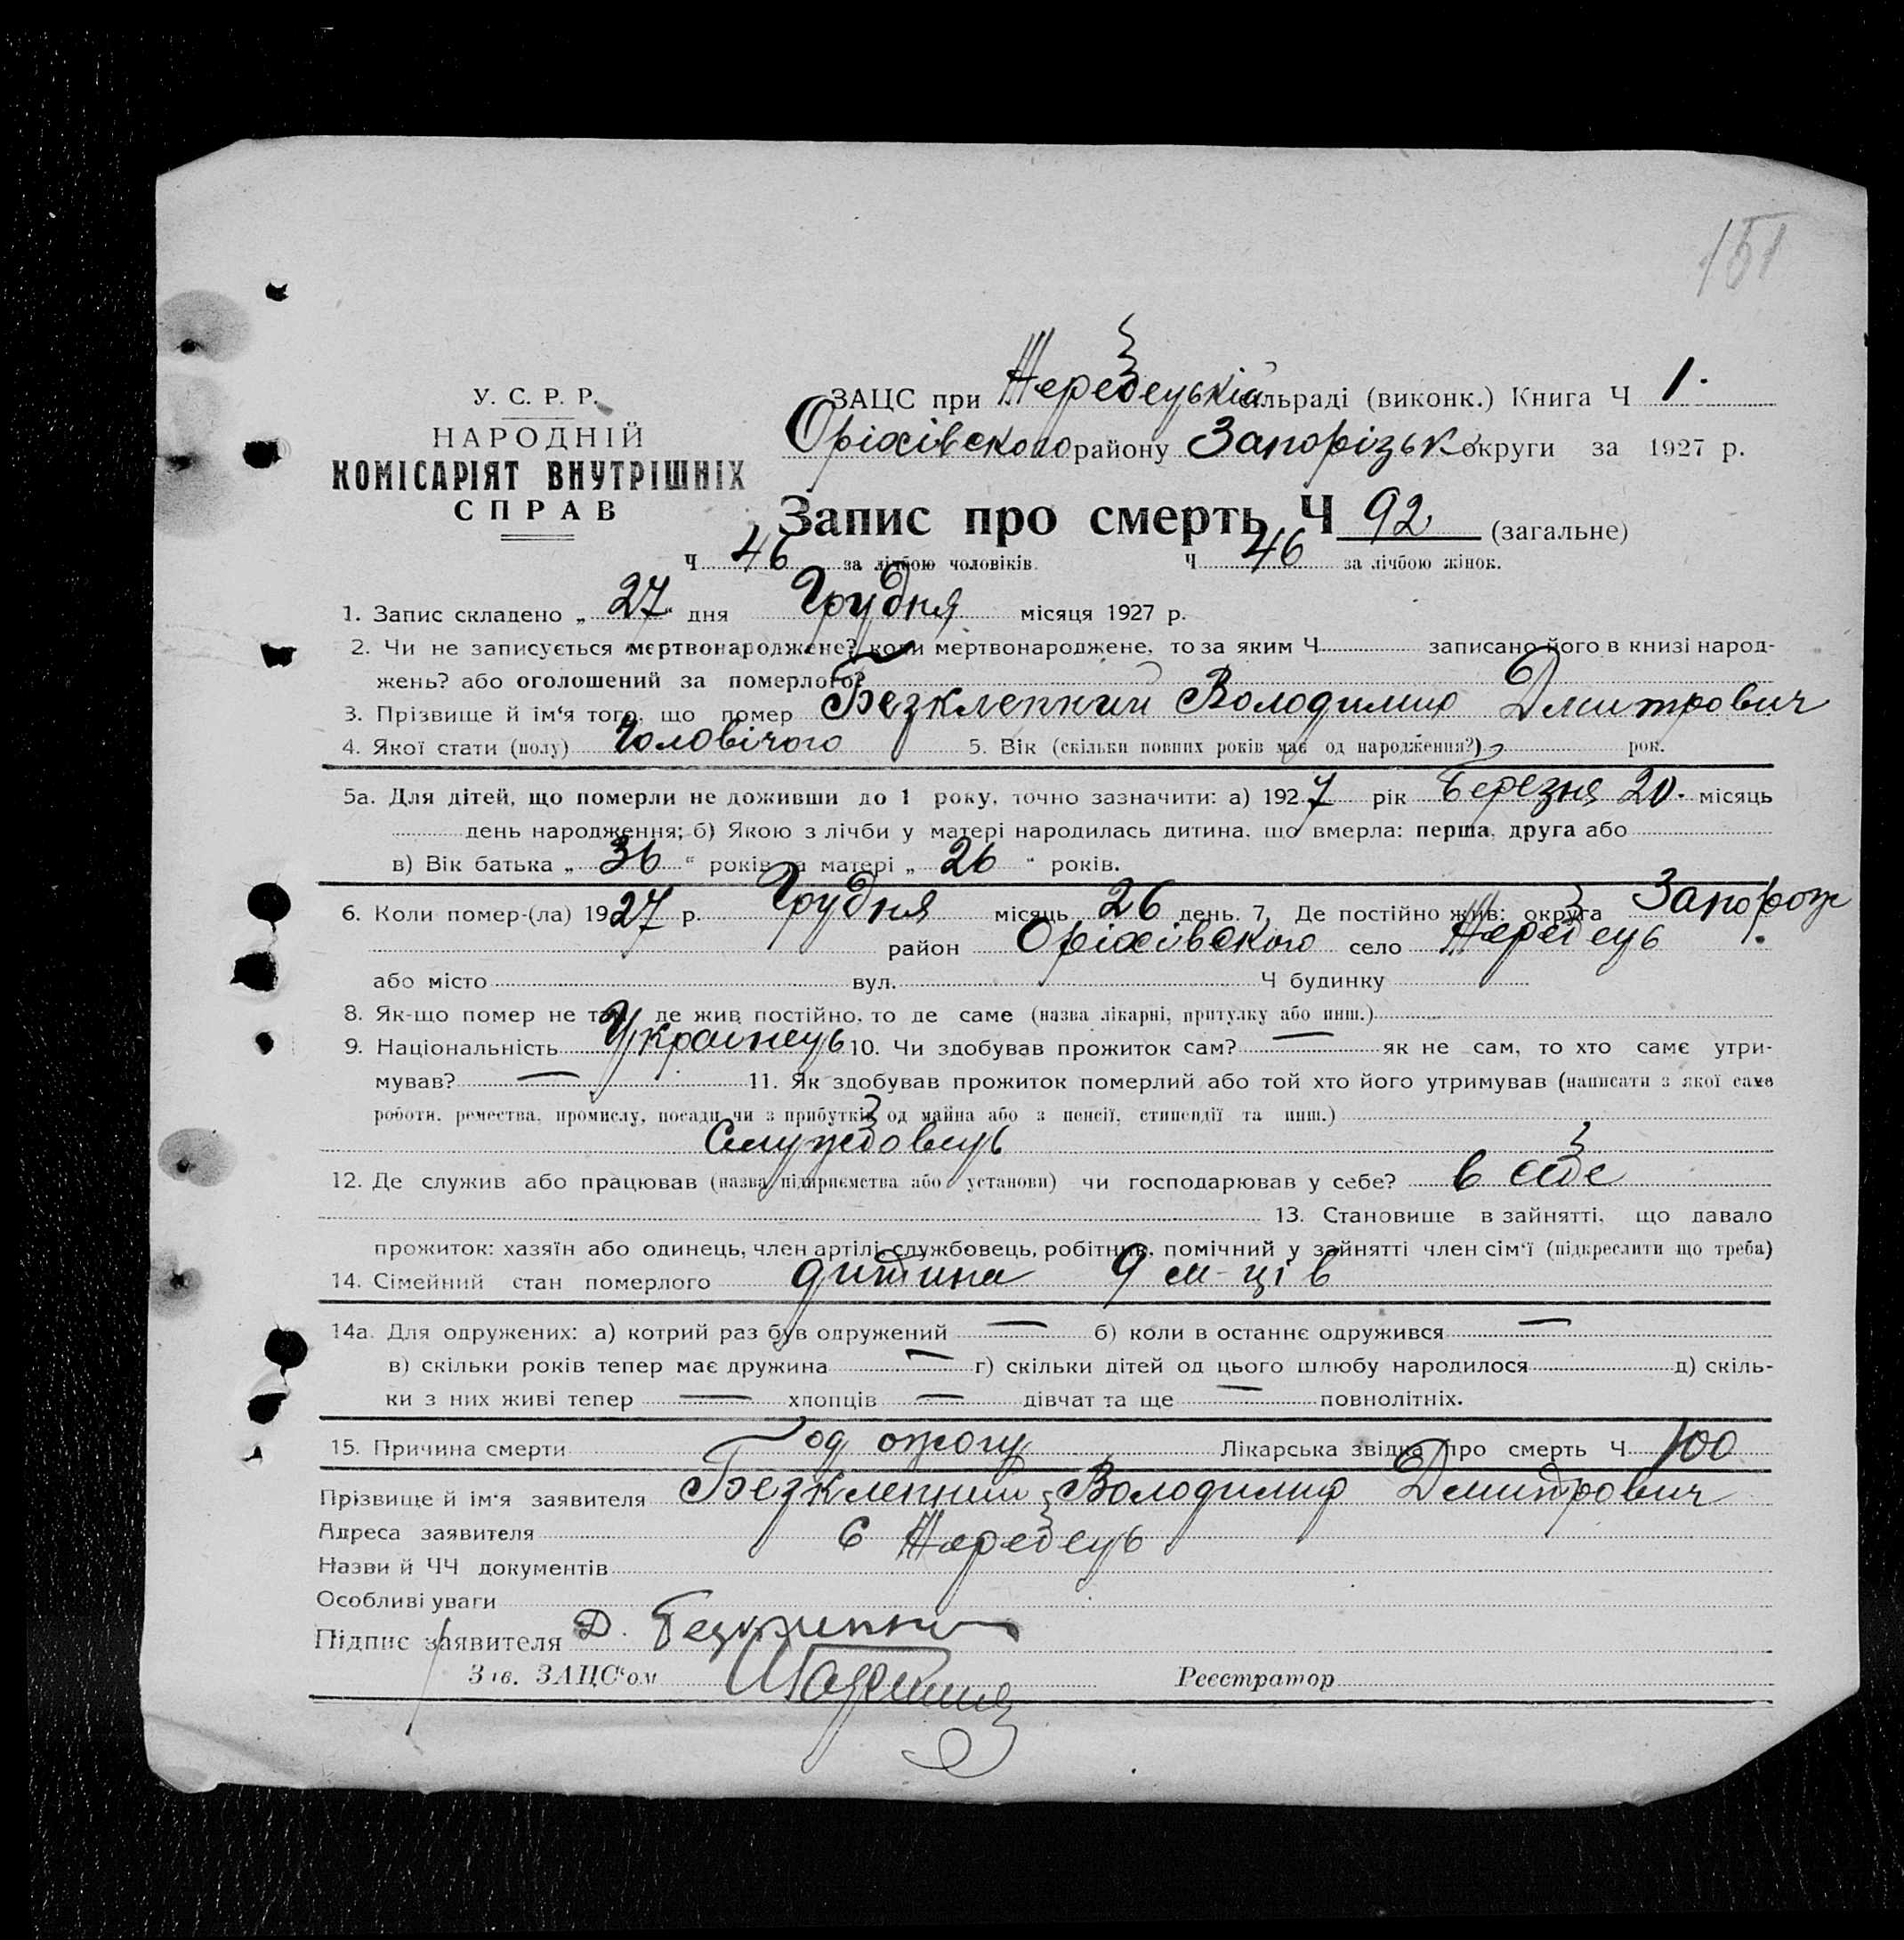 151
У. С. Р. Р.
НАРОДНІЙ
КОМІСАРІЯТ ВНУТРІШНІХ
СПРАВ
ЗАЦС при Жеребецькій сільраді (виконк.) Книга Ч 1.
Оріхівского району Запорізьк округи за 1927 р.
Запис про смерть Ч 92 (загальне)
Ч 46 за лічбою чоловіків. Ч 46 за лічбою жінок.
1. Запис складено „ 27 “ дня Грудня місяця 1927 р.
2. Чи не записується мертвонароджене? коли мертвонароджене, то за яким Ч записано його в книзі народ-
жень? або оголошений за померлого?
3. Прізвище й ім‘я того, що помер Безклепний Володимир Дмитрович
4. Якої стати (полу) Чоловічого 5. Вік (скільки повних років має од народження?) рок.
5а. Для дітей, що померли не доживши до 1 року, точно зазначити: а) 1927 рік Березня 20. місяць
день народження; б) Якою з лічби у матері народилась дитина, що вмерла: перша, друга або
в) Вік батька „ 36 “ років, а матері „ 26 “ років.
6. Коли помер-(ла) 1927 р. Грудня місяць 26 день. 7. Де постійно жив: округа Запорож
район Оріхівского село Жеребець
або місто вул. Ч будинку
8. Як-що помер не там, де жив постійно, то де саме (назва лікарні, притулку або инш.)
9. Національність Українець 10. Чи здобував прожиток сам? — як не сам, то хто саме утри-
мував? — 11. Як здобував прожиток померлий або той хто його утримував (написати з якої саме
роботи, ремества, промислу, посади чи з прибутків од майна або з пенсії, стипендії та инш.)
Службовець
12. Де служив або працював (назва підприємства або установи) чи господарював у себе? в себе
13. Становище в зайнятті, що давало
прожиток: хазяїн або одинець, член артілі, службовець, робітник, помічний у зайнятті член сім‘ї (підкреслити що треба)
14. Сімейний стан померлого дитина 9 м-ців
14а. Для одружених: а) котрий раз був одружений — б) коли в останнє одружився —
в) скільки років тепер має дружина — г) скільки дітей од цього шлюбу народилося д) скіль-
ки з них живі тепер — хлопців — дівчат та ще — повнолітніх.
15. Причина смерти од ожогу Лікарська звідка про смерть Ч 100
Прізвище й ім‘я заявителя Безклепний Володимир Дмитрович
Адреса заявителя с Жеребець
Назви й ЧЧ документів
Особливі уваги
Підпис заявителя Д.
Зав. ЗАЦС‘ом Реєстратор